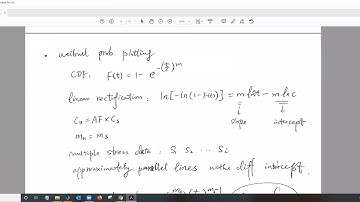 • weibull prob. plotting
CDF: F(t) = 1 - e^{-(t/c)^m}
linear rectification: ln[-ln(1-F(t))] = m ln t - m ln c
slope intercept
Cu = AF × Cs
mu = ms
multiple stress data: S1 S2 ... Si
approximately parallel lines with diff intercept.